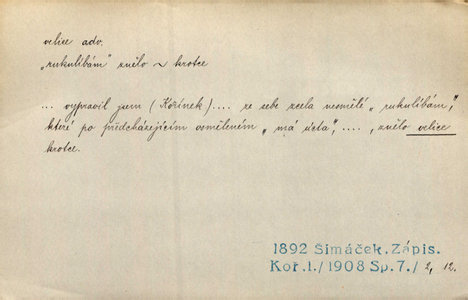 velice adv.
„rukulíbám" znělo ~ krotce
... vypravil jsem (Kořínek).... ze sebe zcela nesmělé „rukulíbám",
které po předcházejícím osměleném „má úcta", ...., znělo velice
krotce.
1892 Šimáček. Zápis.
Koř.1./1908 Sp.7./ 2, 12.